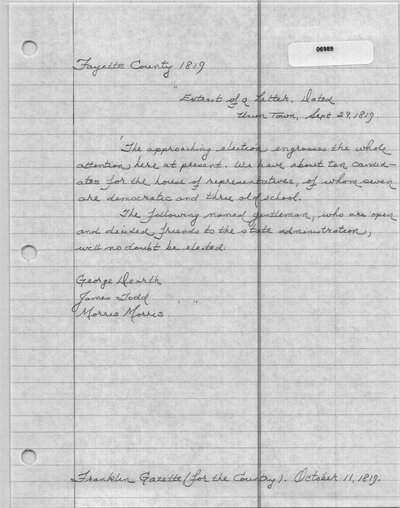 06989
Fayette County 1819
"Extract of a Letter, Dated
Union Town, Sept 29, 1819.
'The approaching election engrosses the whole
attention here at present. We have about ten candid-
ates for the house of representatives, of whom seven
are democratic and three old school.
The following named gentleman, who are open
and decided friends to the state administration,
will no doubt be elected:
George Dearth
James Todd
Morris Morris. ' "
Franklin Gazette (for the Country). October 11, 1819.